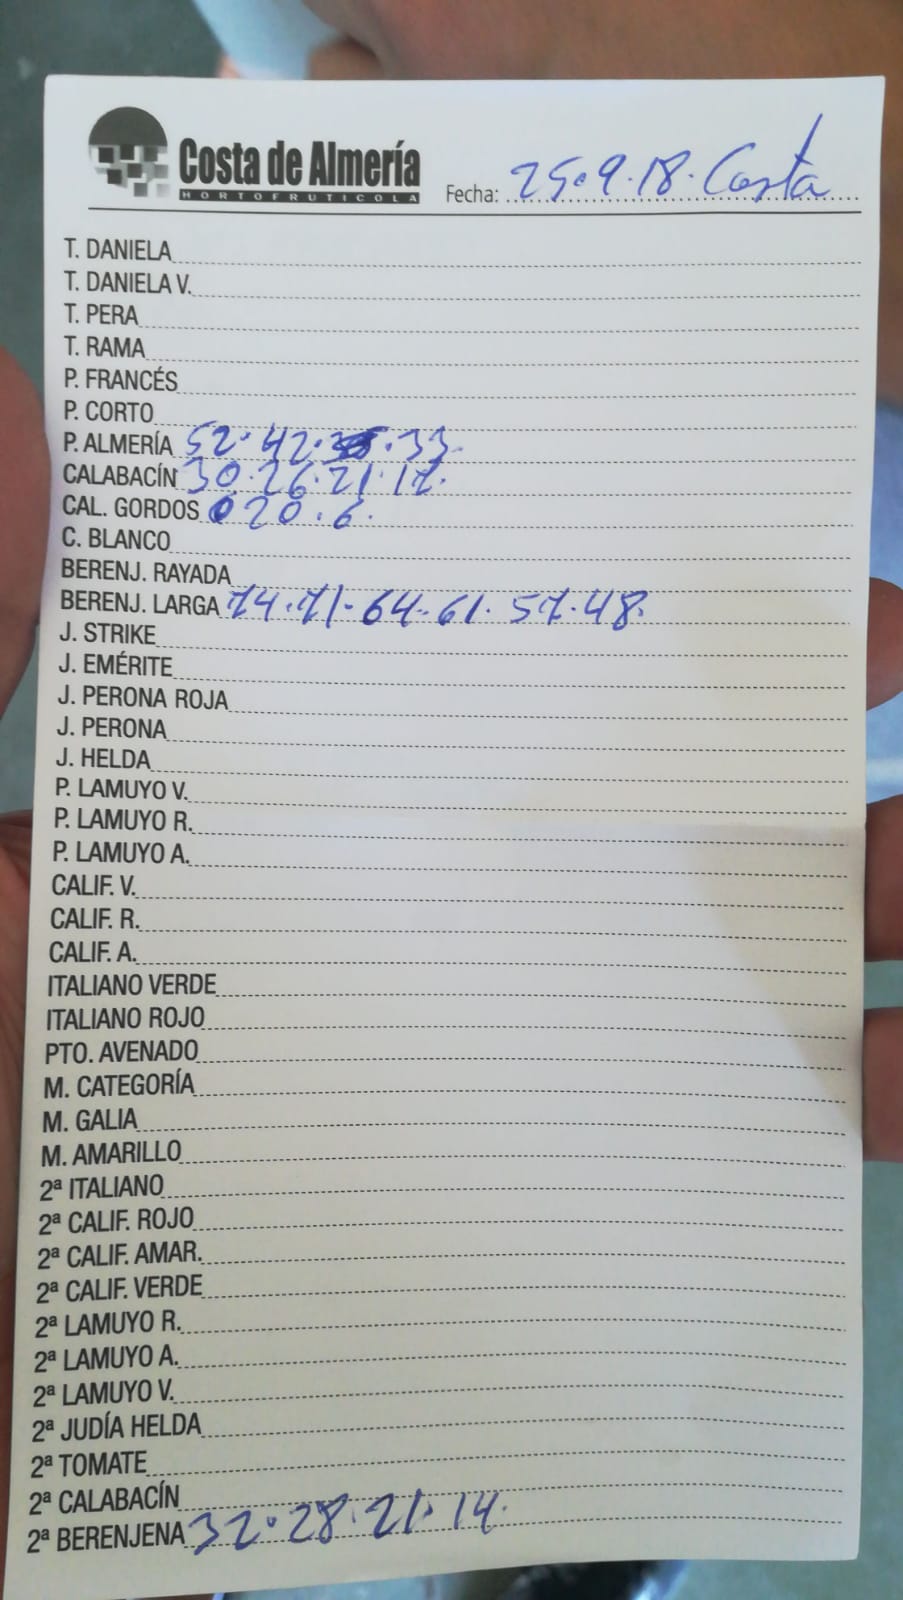 Costa de Almería
HORTOFRUTICOLA
Fecha: 25.9.18. Costa
T. DANIELA
T. DANIELA V.
T. PERA
T. RAMA
P. FRANCÉS
P. CORTO
P. ALMERÍA 52.42. .33.
CALABACÍN 30.26.21.17.
CAL. GORDOS 20.6.
C. BLANCO
BERENJ. RAYADA
BERENJ. LARGA 74.71.64.61.57.48.
J. STRIKE
J. EMÉRITE
J. PERONA ROJA
J. PERONA
J. HELDA
P. LAMUYO V.
P. LAMUYO R.
P. LAMUYO A.
CALIF. V.
CALIF. R.
CALIF. A.
ITALIANO VERDE
ITALIANO ROJO
PTO. AVENADO
M. CATEGORÍA
M. GALIA
M. AMARILLO
2ª ITALIANO
2ª CALIF. ROJO
2ª CALIF. AMAR.
2ª CALIF. VERDE
2ª LAMUYO R.
2ª LAMUYO A.
2ª LAMUYO V.
2ª JUDÍA HELDA
2ª TOMATE
2ª CALABACÍN
2ª BERENJENA 32.28.21.14.